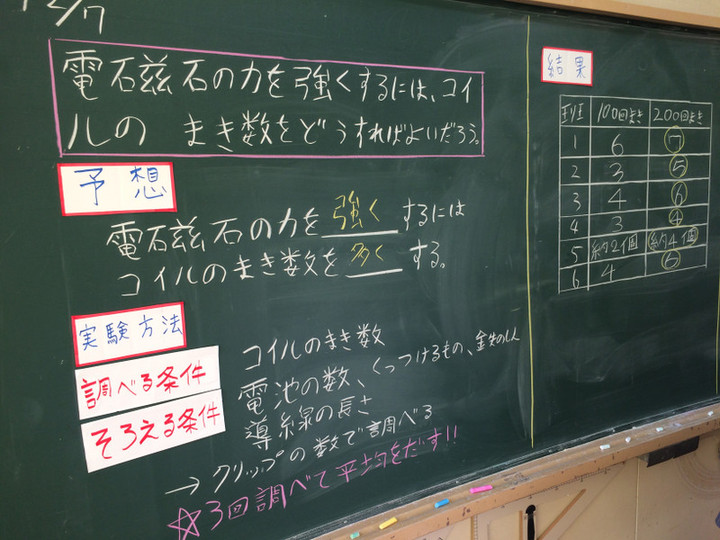 12/7
電石兹石の力を強くするには、コイ
ルの まき数をどうすればよいだろう。
予想
電石兹石の力を強くするには
コイルのまき数を多くする。
実験方法
調べる条件 コイルのまき数
そろえる条件 電池の数、くっつけるもの、金失のしん
導線の長さ
→クリップの数で調べる
☆3回調べて平均をだす!!
結果
班 100回まき 200回まき
1 6 7
2 3 5
3 4 6
4 3 4
5 約2個 約4個
6 4 6